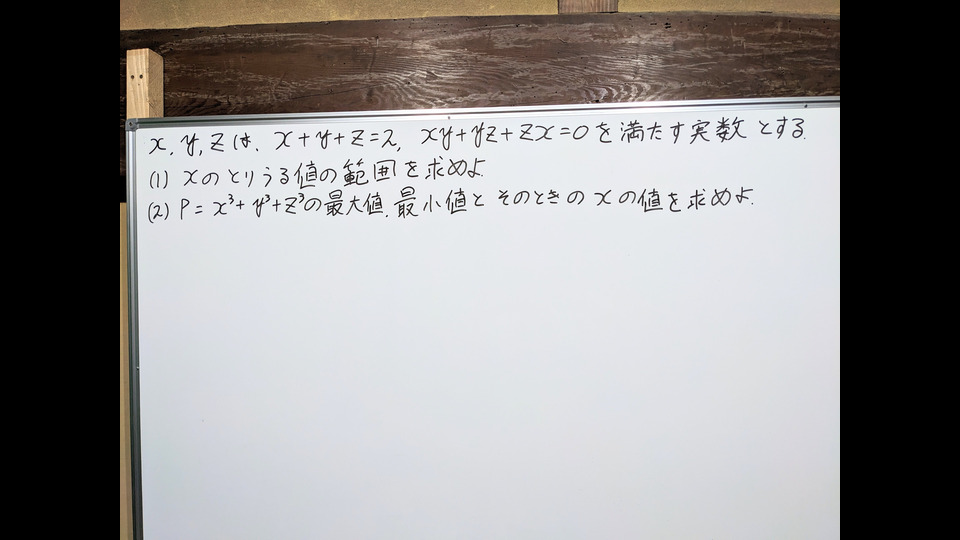 x, y, zは、x+y+z=2, xy+yz+zx=0を満たす実数とする.
(1) xのとりうる値の範囲を求めよ.
(2) P=x³+y³+z³の最大値、最小値とそのときのxの値を求めよ.